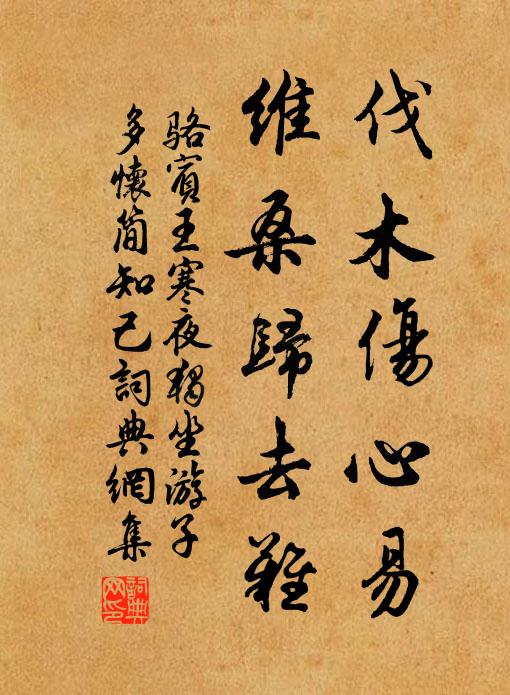 伐木傷心易
維桑歸去難
駱賓王寒夜獨坐游子
多懷簡知己詞典網集
詞典
网印